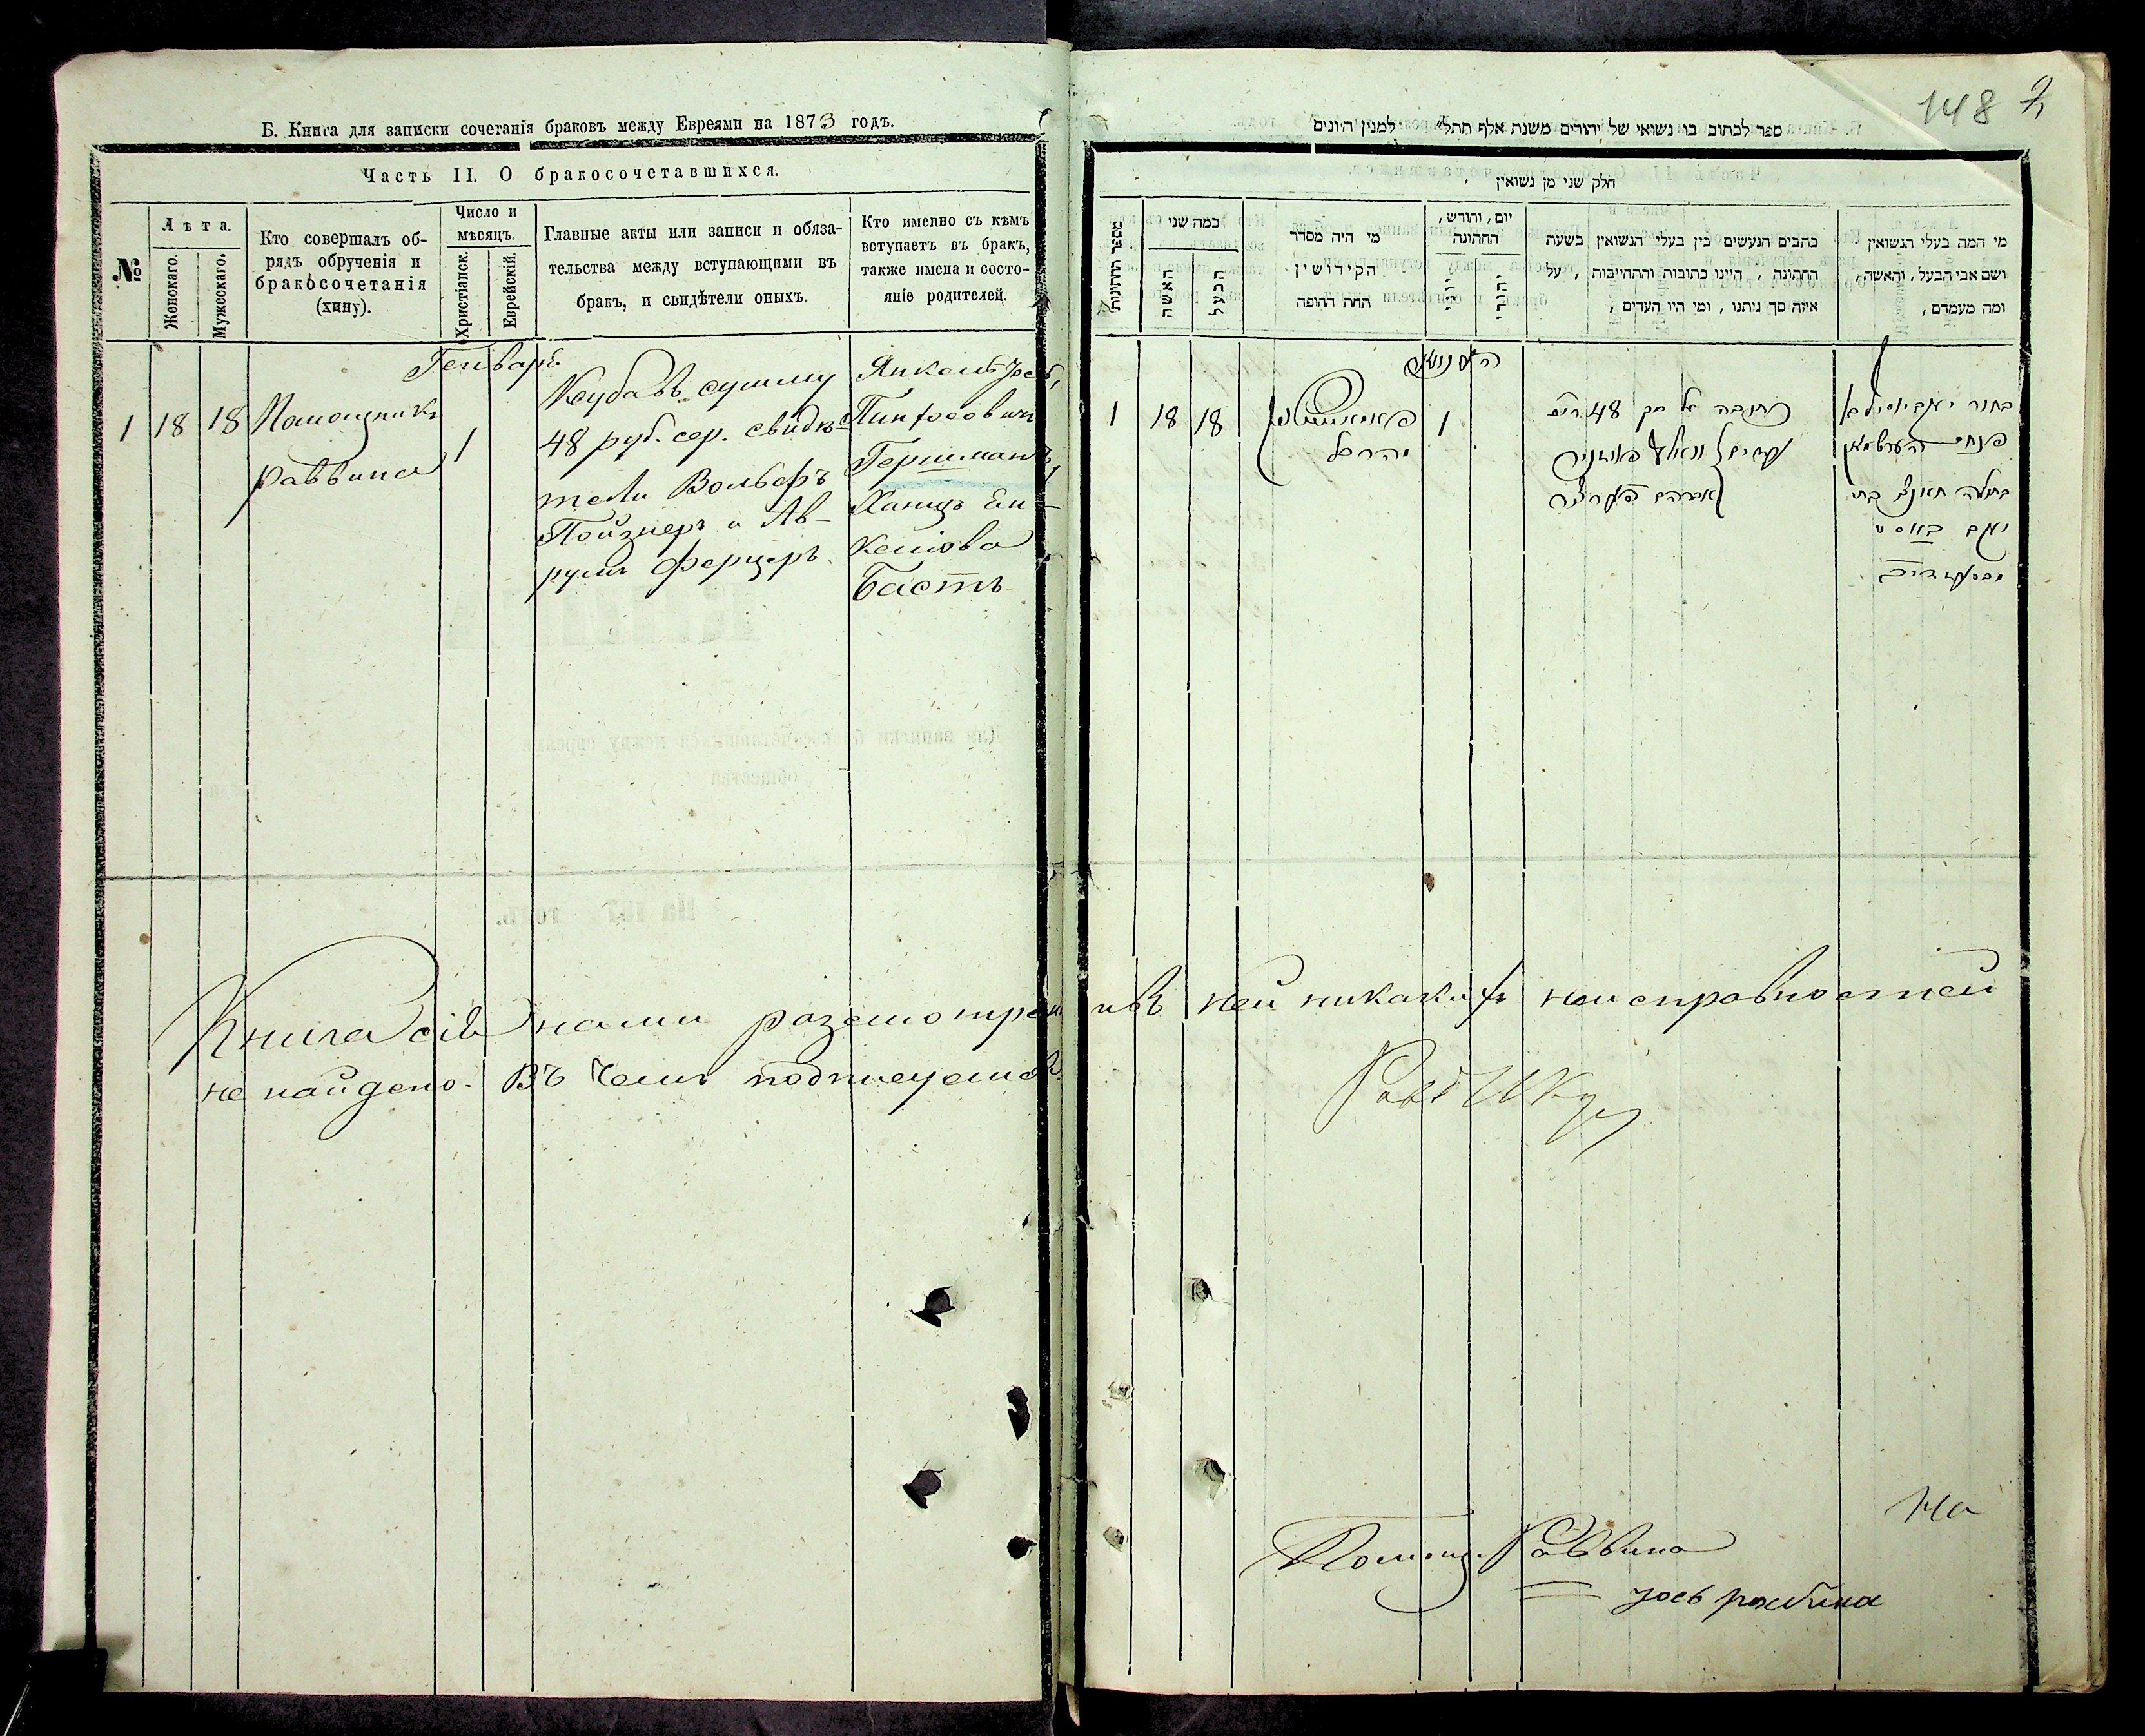 Б. Книга для записки сочетанія браковъ между Евреями на 1873 годъ.
Часть II. О бракосочетавшихся.
№
Лѣта.
Женскаго.
Мужескаго.
Кто совершалъ об-
рядъ обрученія и
бракосочетанія
(хину).
Число и
мѣсяцъ.
Христіанск.
Еврейскій.
Главные акты или записи и обяза-
тельства между вступающими въ
бракъ, и свидѣтели оныхъ.
Кто именно съ кѣмъ
вступаетъ въ бракъ,
также имена и состо-
яніе родителей.
Генварь
1
18
18
Помощникъ
раввина
1
Кеуба въ сумму
48 руб. сер. свидѣ-
тели Вольфъ
Пойзнеръ и Ав-
румъ Ферцеръ.
Янкель Іось
Пинхосовичъ
Гершманъ
Ханця Ен-
келіова
Бастъ
148
2
ספר לכתוב בו נשואי של יהודים משנת אלף תתל״ למנין היונים
חלק שני מן נשואין
מספר החתונות
כמה שני
האשה
הבעל
מי היה מסדר
הקידושין
תחת החופה
יום, והודש,
החתונה
יוני
יהודי
כתבים הנעשים בין בעלי הנשואין בשעת
החתונה, היינו כתובות והתחייבות, על
איזה סך ניתנו, ומי היו העדים,
מי המה בעלי הנשואין
ושם אבי הבעל, והאשה,
ומה מעמדם,
1
18
18
1
כתובה על סך 48
בחור
פנחס הערשמאן
בתולה
באסט
Книга сія нами разсмотрена и въ ней никакихъ неисправностей
не найдено. Въ чемъ подписуемся.
Помощ. Раввина